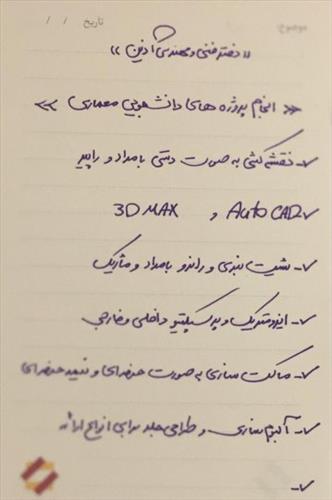 موضوع: تاریخ / /
« دفتر فنی و مهندسی آذین »
« انجام پروژه های دانشجویی معماری »
✓- نقشه کشی به صورت دستی با مداد و راپید
✓ AutoCAD و 3D MAX
✓- شیت بندی و راندو با مداد و ماژیک
✓- ایزومتریک و پرسپکتیو داخلی و خارجی
✓- ماکت سازی به صورت حرفه ای و نیمه حرفه ای
✓- آلبوم سازی و طراحی جلد برای ارائه
✓-